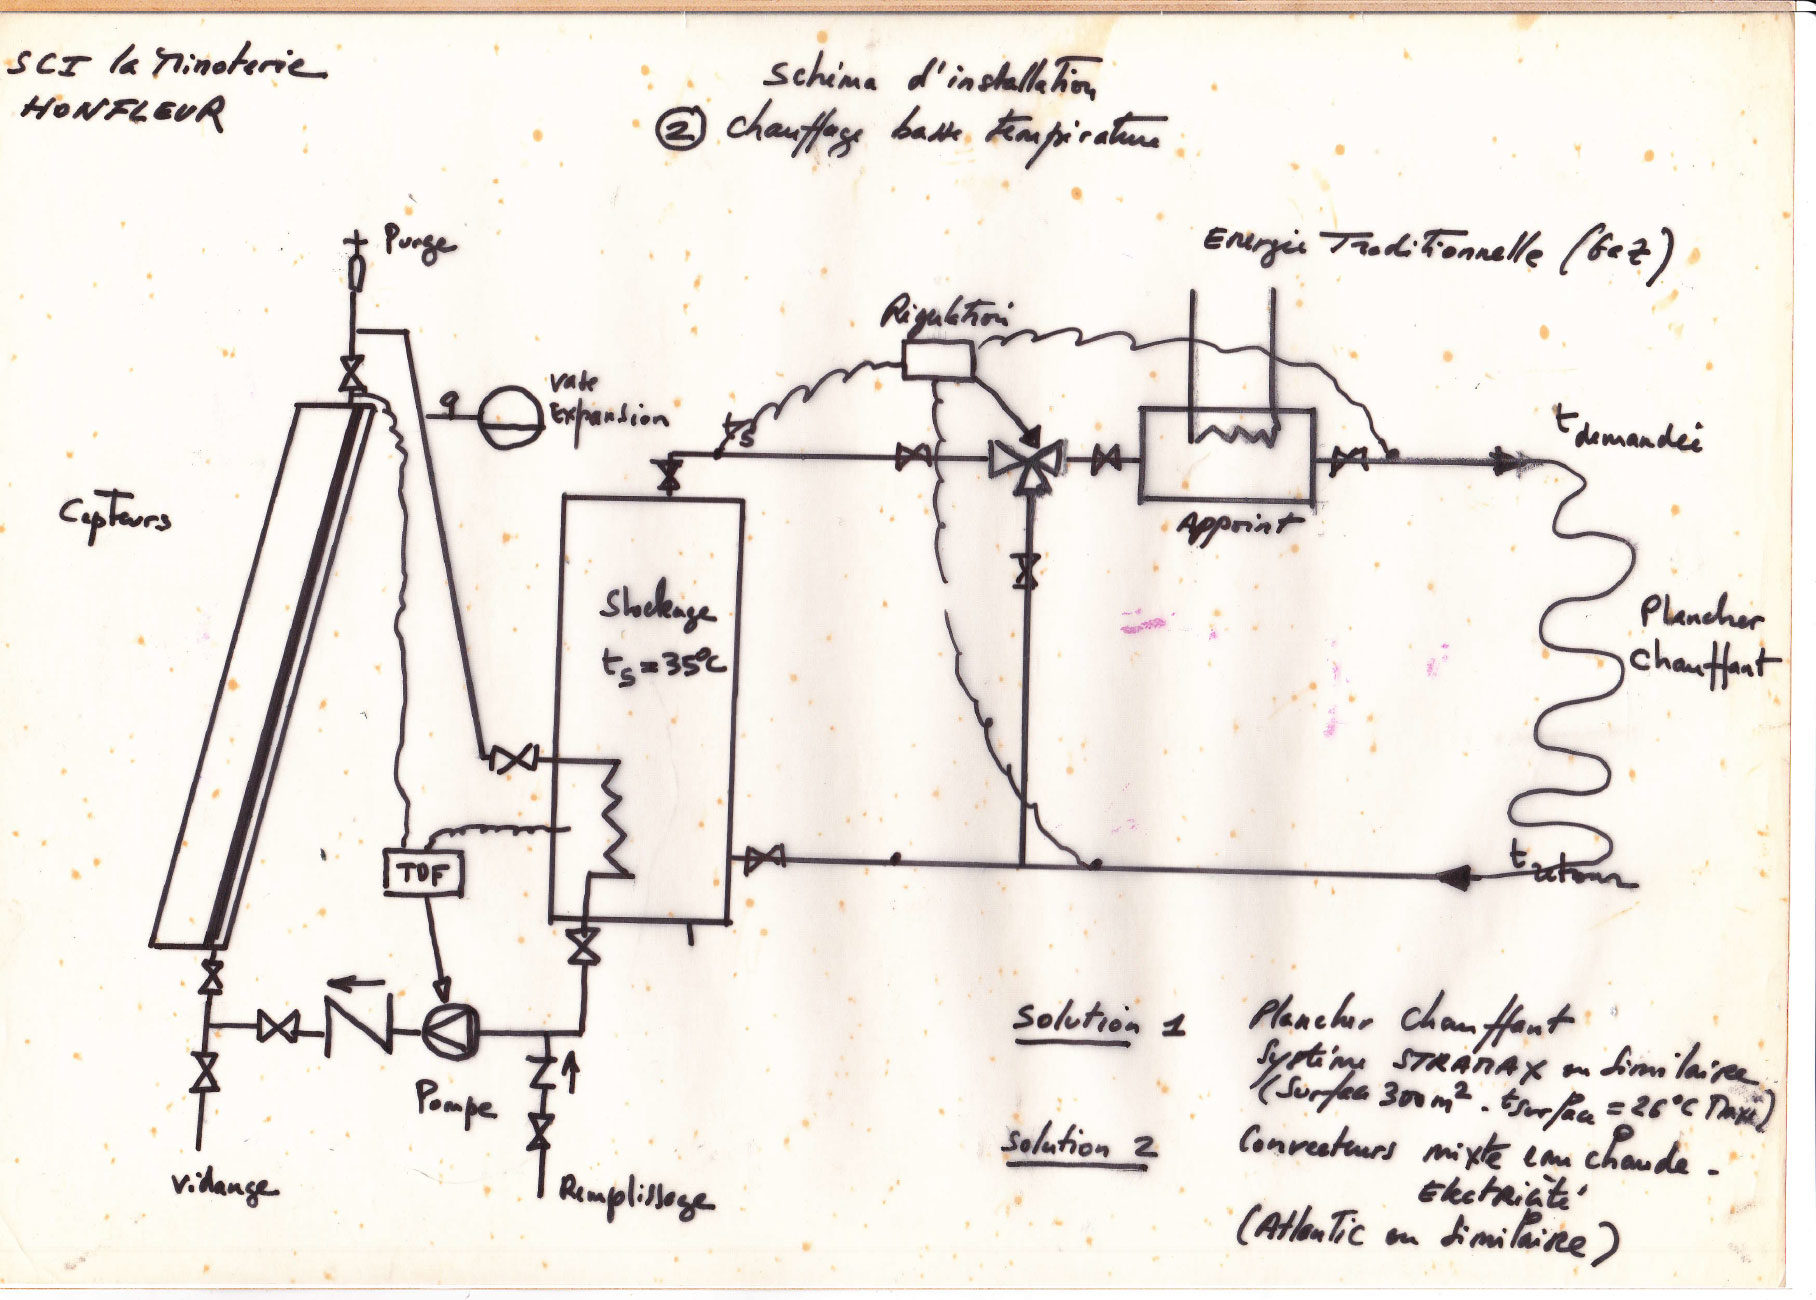 SCI la Minoterie
HONFLEUR
Schéma d'installation
② chauffage basse température
Purge
Energie Traditionnelle (Gaz)
Régulation
vase
Expansion
ts
t demandée
Capteurs
Appoint
Stockage
ts = 35°C
Plancher
chauffant
TDF
t retour
Pompe
Vidange
Remplissage
Solution 1
Plancher chauffant
Système STRAMAX ou similaire
(Surface 300 m². tsurface = 26°C Maxi)
Solution 2
Convecteurs mixte eau chaude -
Electricité
(Atlantic ou similaire)